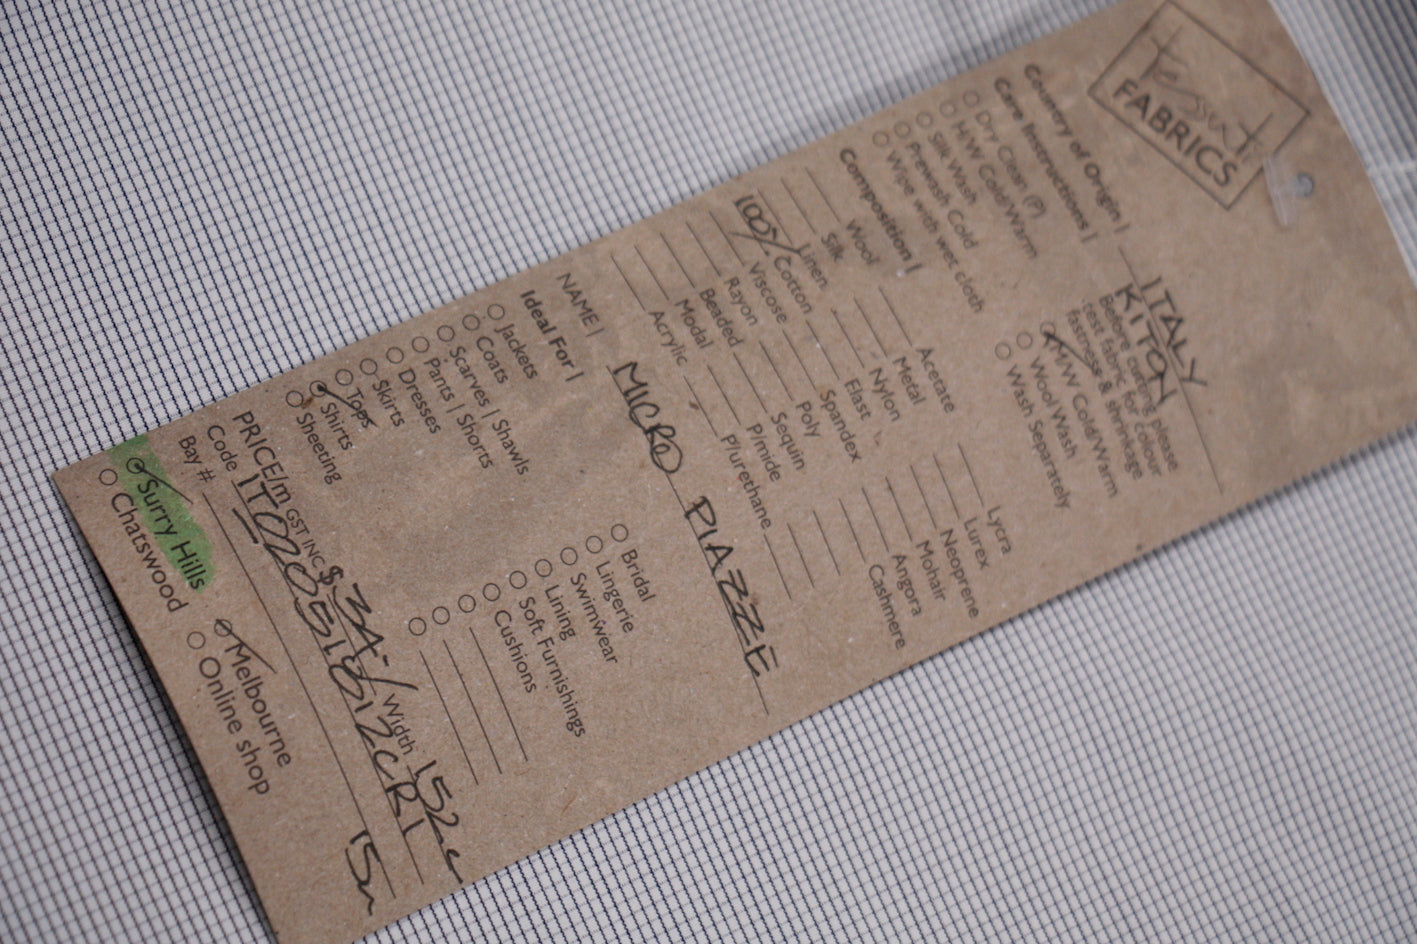 Tessuti
FABRICS
Country of Origin | ITALY
KITON
Care Instructions | Before cutting please
test fabric for colour
fastness & shrinkage
Dry Clean (P) M/W Cold/Warm
H/W Cold/Warm Wool Wash
Silk Wash Wash Separately
Prewash Cold
Wipe with wet cloth
Composition |
Wool Acetate Lycra
Silk Metal Lurex
Linen Nylon Neoprene
100% Cotton Elast Mohair
Viscose Spandex Angora
Rayon Poly Cashmere
Beaded Sequin
Modal P/mide
Acrylic P/urethane
NAME | MICRO PIAZZE
Ideal For |
Jackets Bridal
Coats Lingerie
Scarves | Shawls Swimwear
Pants | Shorts Lining
Dresses Soft Furnishings
Skirts Cushions
Tops
Shirts
Sheeting
PRICE/m GST INC $34.- / Width 152cm
Code
Bay # 15m
Surry Hills Melbourne
Chatswood Online shop